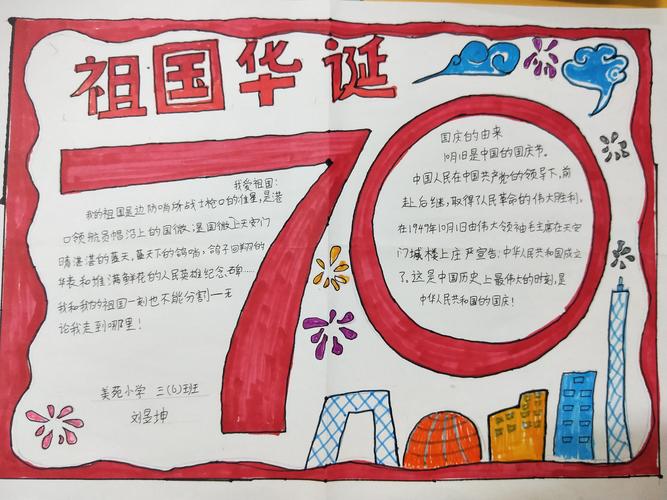 祖国华诞
70
我爱祖国:
我的祖国是边防哨所战士枪口的准星,是港
口领航员帽沿上的国徽,是国徽上天安门
晴湛湛的蓝天,蓝天下的鸽哨,鸽子回翔的
和堆满鲜花的人民英雄纪念碑……
我和我的祖国一刻也不能分割一无
论我走到哪里!
美苑小学 三(6)班
刘昱坤
国庆的由来
10月1日是中国的国庆节。
中国人民在中国共产党的领导下,前
赴后继,取得了人民革命的伟大胜利。
在1949年10月1日由伟大领袖毛主席在天安
门城楼上庄严宣告:中华人民共和国成立
了,这是中国历史上最伟大的时刻,是
中华人民共和国的国庆!